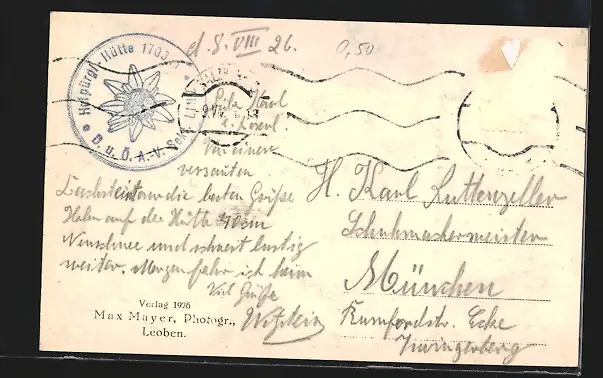 Hofpürgl-Hütte 1703 m
D. u. Ö. A.-V. Sekt. Linz
d. 8. VIII 26.
0,50
Von einer
versauten
Dachsteintour die besten Grüße
Haben auf der Hütte 40 cm
Neuschnee und schneit lustig
weiter. Morgen fahr ich heim
Viel Grüße
H. Karl Luttenzeller
Schuhmachermeister
München
Rumfordstr. Ecke
Verlag 1926
Max Mayer, Photogr.,
Leoben.